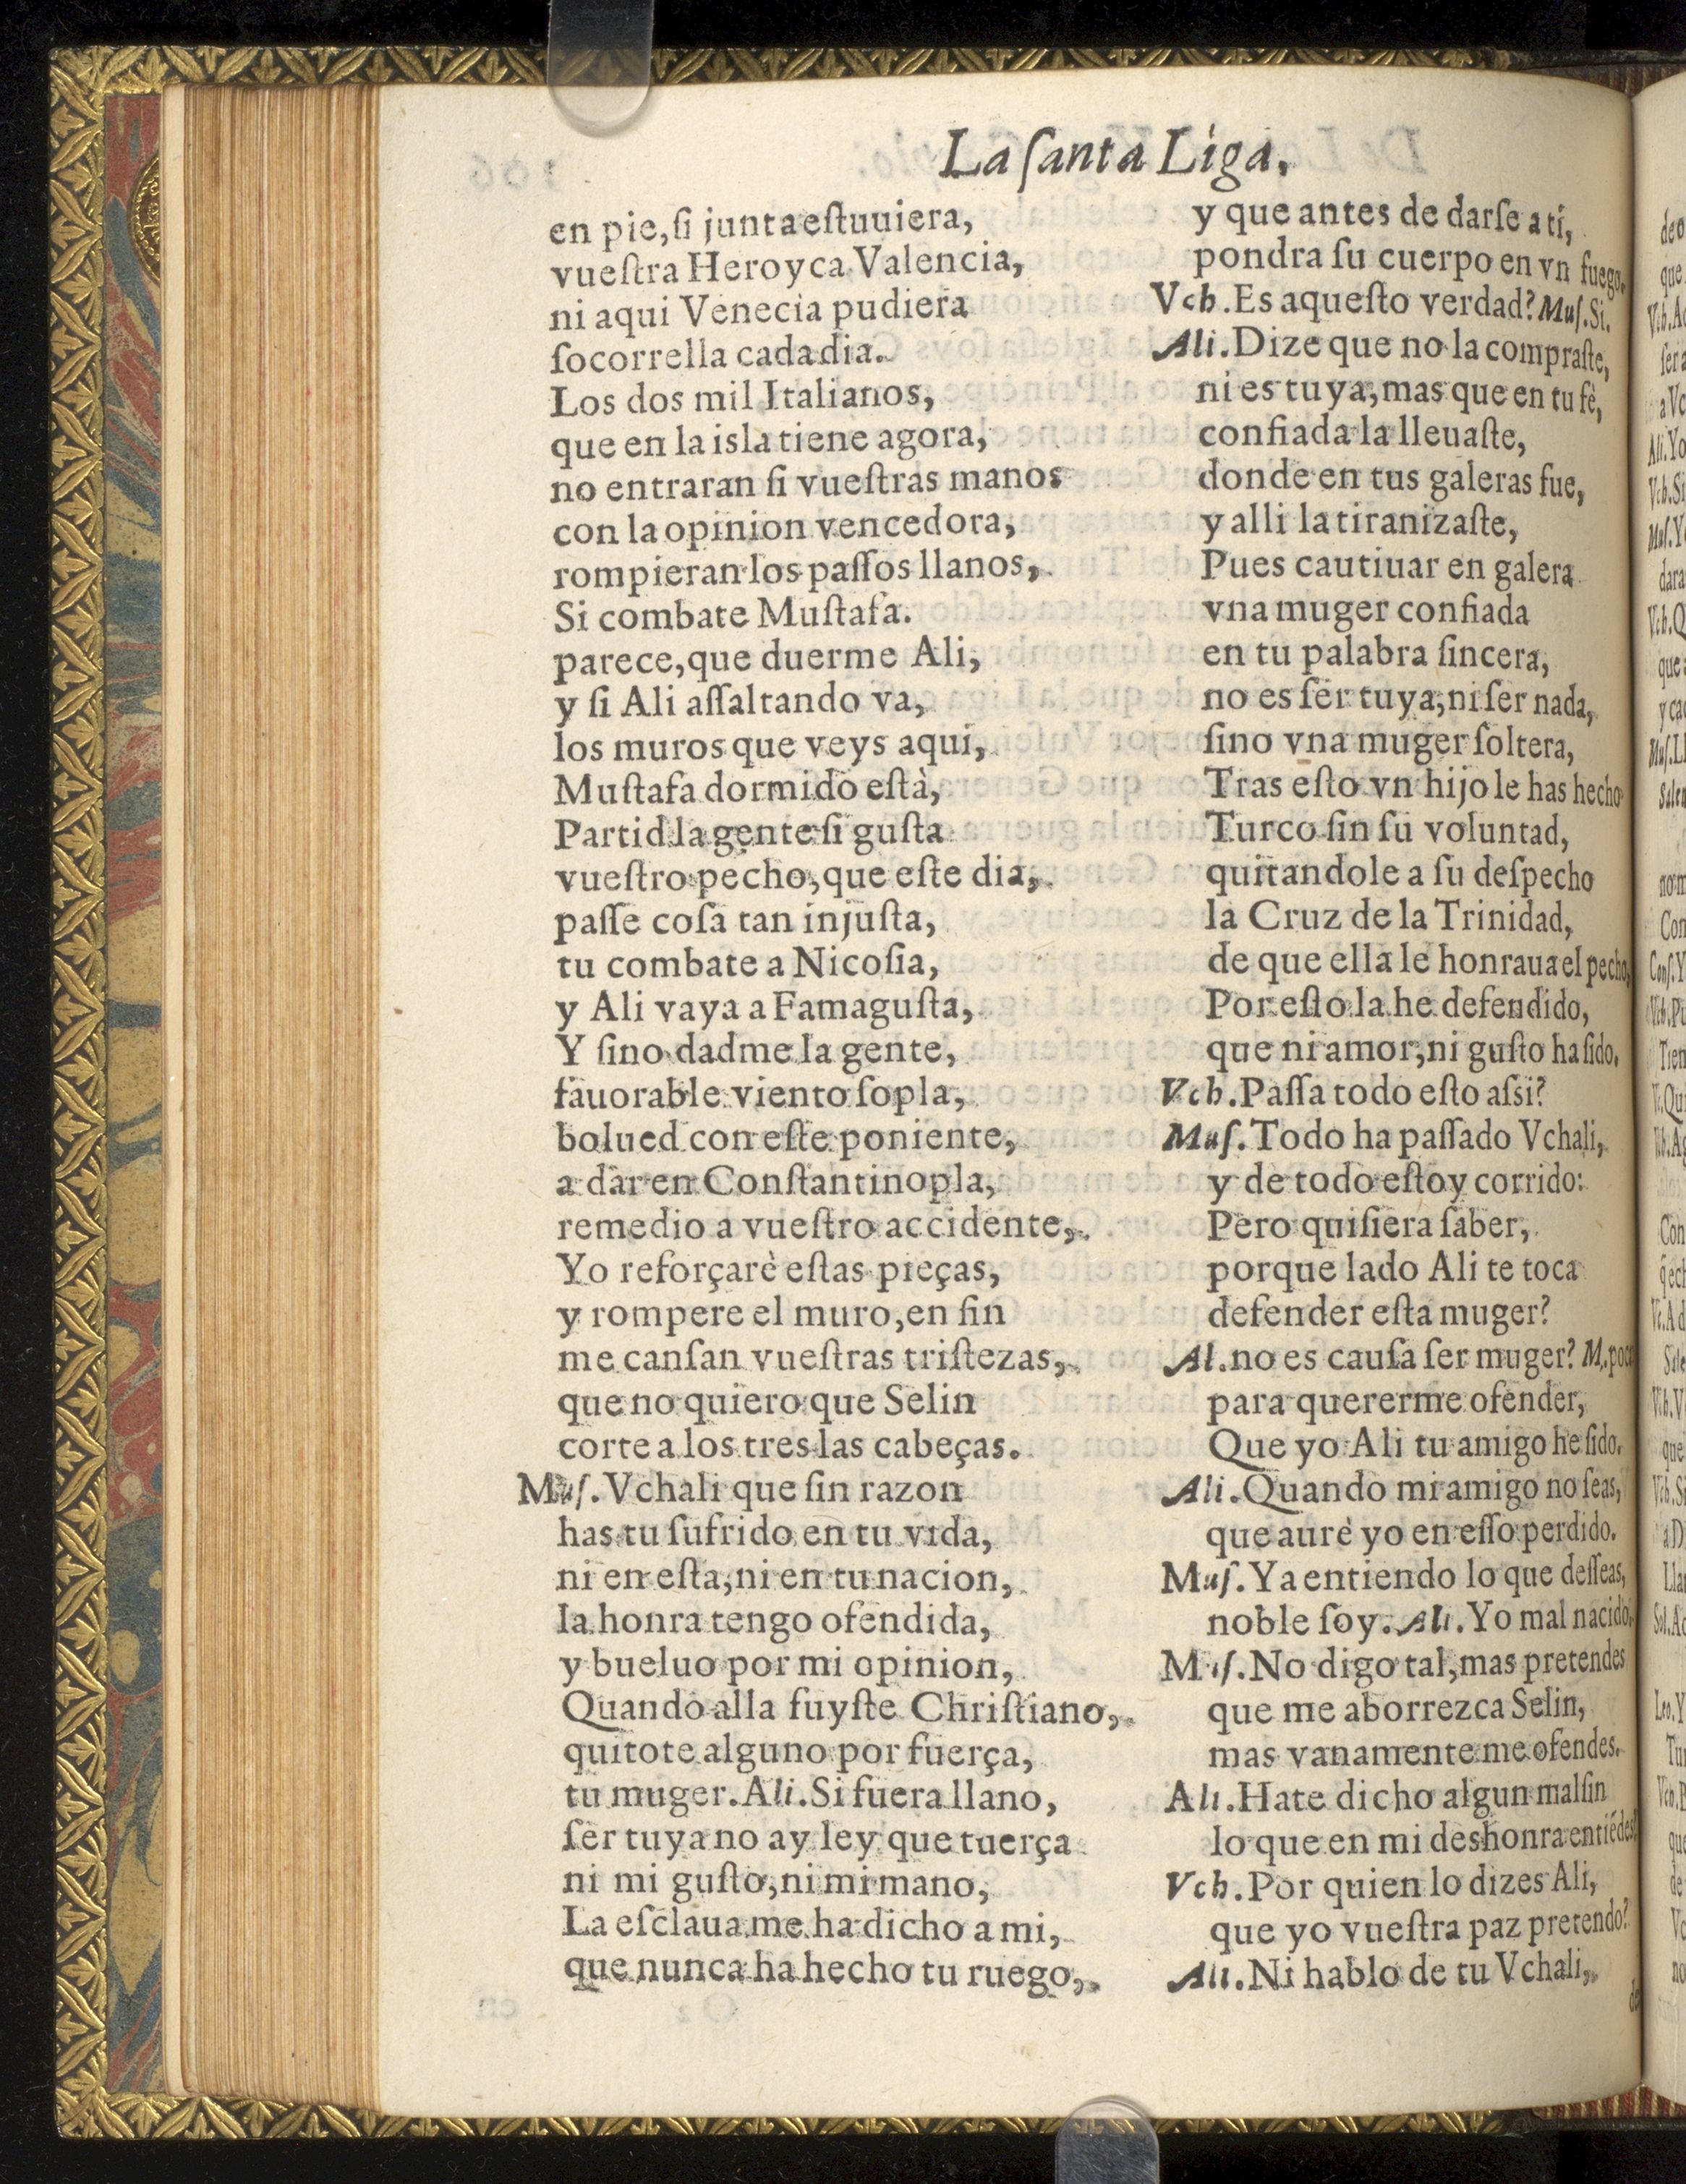 La ſanta Liga,
en pie, ſi junta eſtuuiera,
vueſtra Heroyca Valencia,
ni aqui Venecia pudiera
ſocorrella cada dia.
Los dos mil Italianos,
que en la isla tiene agora,
no entraran ſi vueſtras manos
con la opinion vencedora,
rompieran los paſſos llanos,
Si combate Muſtafa.
parece, que duerme Ali,
y ſi Ali aſſaltando va,
los muros que veys aqui,
Muſtafa dormido eſtà,
Partid la gente ſi guſta
vueſtro pecho, que eſte dia,
paſſe coſa tan injuſta,
tu combate a Nicoſia,
y Ali vaya a Famaguſta,
Y ſino dadme la gente,
fauorable viento ſopla,
bolued con eſte poniente,
a dar en Conſtantinopla,
remedio a vueſtro accidente,
Yo reforçarè eſtas pieças,
y rompere el muro, en fin
me canſan vueſtras triſtezas,
que no quiero que Selin
corte a los tres las cabeças.
Muſ. Vchali que ſin razon
has tu ſufrido en tu vida,
ni en eſta, ni en tu nacion,
la honra tengo ofendida,
y bueluo por mi opinion,
Quando alla fuyſte Chriſtiano,
quitote alguno por fuerça,
tu muger. Ali. Si fuera llano,
ſer tuya no ay ley que tuerça
ni mi guſto, ni mi mano,
La eſclaua me ha dicho a mi,
que nunca ha hecho tu ruego,
y que antes de darſe a ti,
pondra ſu cuerpo en vn fuego.
Vch. Es aqueſto verdad? Muſ. Si.
Ali. Dize que no la compraſte,
ni es tuya, mas que en tu fè,
confiada la lleuaſte,
donde en tus galeras fue,
y alli la tiranizaſte,
Pues cautiuar en galera
vna muger confiada
en tu palabra ſincera,
no es ſer tuya, ni ſer nada,
ſino vna muger ſoltera,
Tras eſto vn hijo le has hecho
Turco ſin ſu voluntad,
quitandole a ſu deſpecho
la Cruz de la Trinidad,
de que ella le honraua el pecho,
Por eſto la he defendido,
que ni amor, ni guſto ha ſido.
Vch. Paſſa todo eſto aſsi?
Muſ. Todo ha paſſado Vchali,
y de todo eſtoy corrido:
Pero quiſiera ſaber,
porque lado Ali te toca
defender eſta muger?
Al. no es cauſa ſer muger? M. poca
para quererme ofender,
Que yo Ali tu amigo he ſido.
Ali. Quando mi amigo no ſeas,
que aurè yo en eſſo perdido.
Muſ. Ya entiendo lo que deſſeas,
noble ſoy. Ali. Yo mal nacido,
Muſ. No digo tal, mas pretendes
que me aborrezca Selin,
mas vanamente me ofendes.
Ali. Hate dicho algun malſin
lo que en mi deshonra entiẽdes?
Vch. Por quien lo dizes Ali,
que yo vueſtra paz pretendo?
Ali. Ni hablo de tu Vchali,